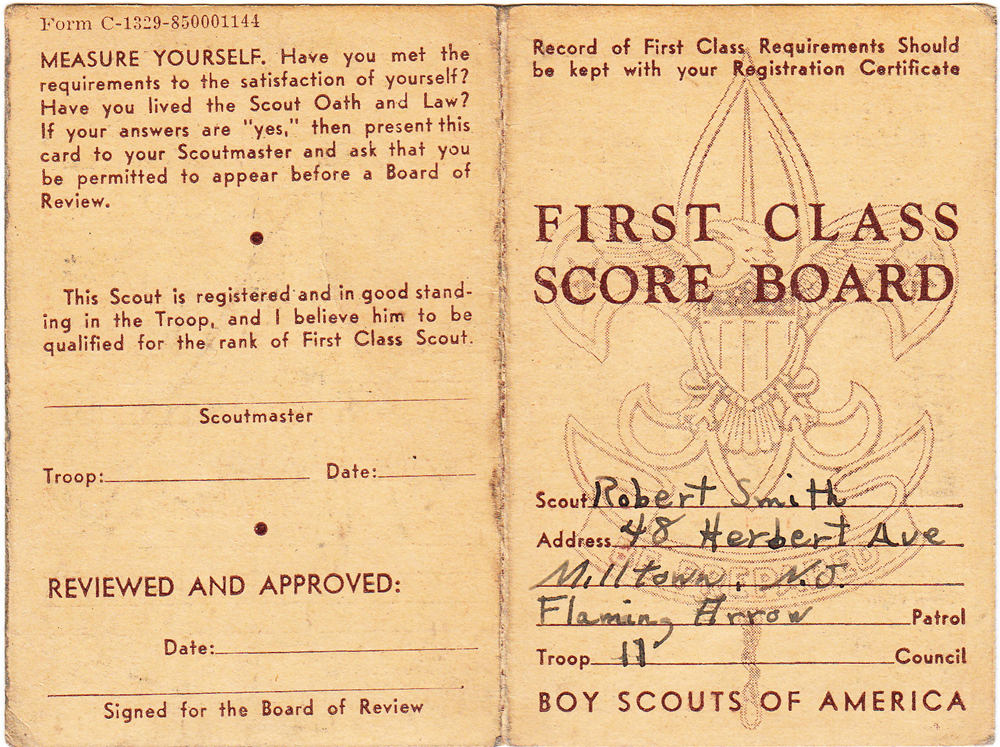 Form C-1329-850001144
MEASURE YOURSELF. Have you met the
requirements to the satisfaction of yourself?
Have you lived the Scout Oath and Law?
If your answers are "yes," then present this
card to your Scoutmaster and ask that you
be permitted to appear before a Board of
Review.
This Scout is registered and in good stand-
ing in the Troop, and I believe him to be
qualified for the rank of First Class Scout.
Scoutmaster
Troop: Date:
REVIEWED AND APPROVED:
Date:
Signed for the Board of Review
Record of First Class Requirements Should
be kept with your Registration Certificate
FIRST CLASS
SCORE BOARD
Scout Robert Smith
Address 48 Herbert Ave
Milltown, N.J.
Flaming Arrow Patrol
Troop 11 Council
BOY SCOUTS OF AMERICA